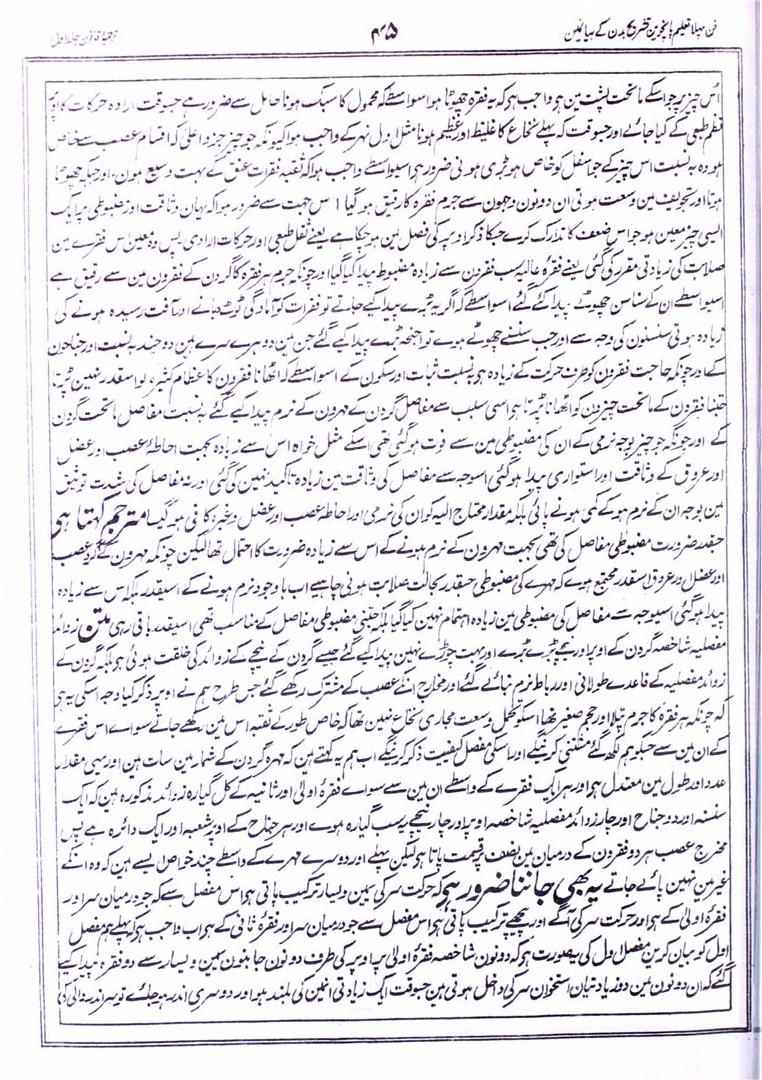 فن پہلا تعلیم پانچوین تشریح بدن کے بیانمین
۴۵
ترجمۂ قانون جلد اول
اُس چیز پر جو اسکے ماتحت پشت مین ہو واجب ہوا کہ یہ فقرہ چھوٹا ہو اسواسطے کہ محمول کا سبک ہونا حامل سے ضرور ہے جسوقت ارادہ حرکات کا اوپر
نظم طبعی کے کیا جائے اور جسوقت کہ پہلے نخاع کا غلیظ اور عظیم ہونا مثل اول نہر کے واجب ہوا کیونکہ جو چیز جزو اعلی کہ اقسام عصب سے خاص
ہو وہ بہ نسبت اس چیز کے جو اسفل کو خاص ہو بڑی ہونی ضرور ہے اسیواسطے واجب ہوا کہ ثقبہ فقرات عنق کے بہت وسیع ہون اور جبکہ چھوٹا
ہونا اور تجویف مین وسعت ہوتی ان دونون وجہون سے جرم فقرہ کا رقیق ہو گیا اس جہت سے ضرور ہوا کہ یہان وثاقت اور مضبوطی پر ایک
ایسی چیز معین ہو جو اس ضعف کا تدارک کرے جسکا ذکر اوپر کی فصل مین ہو چکا ہے یعنے ثقل طبعی اور حرکات ارادی پس وہ معین اس فقرے مین
صلابت کی زیادتی مقرر کی گئی یعنے فقرۂ عالیہ سب فقرون سے زیادہ مضبوط پیدا کیا گیا اور چونکہ جرم ہر فقرہ کا گردن کے فقرون مین سے رقیق ہے
اسیواسطے ان کے سناسن چھوٹے پیدا کئے گئے اسواسطے کہ اگر یہ بڑے پیدا کیے جاتے تو فقرات کو آمادگی ٹوٹ جانے اور آفت رسیدہ ہونے کی
زیادہ ہوتی سنسنون کی وجہ سے اور جب سنسنے چھوٹے ہوے تو اجنحہ بڑے پیدا کیے گئے جن مین دوہرے سرے ہین دو چند بہ نسبت اور جناحون
کے اور چونکہ حاجت فقرون کو طرف حرکت کے زیادہ ہو بہ نسبت ثبات اور سکون کے اسواسطے کہ اٹھانا فقرون کا عظام کثیرہ کو اسقدر نہین پڑتا
جتنا فقرون کے ماتحت چیزون کو اٹھانا پڑتا ہے اسی سبب سے مفاصل گردن کے مہرون کے نرم پیدا کیے گئے بہ نسبت مفاصل ماتحت گردن
کے اور چونکہ جو چیز بوجہ نرمی کے ان کی مضبوطی مین سے فوت ہو گئی تھی اسکے مثل خواہ اس سے زیادہ بجہت احاطہ عصب اور عضل
اور عروق کے وثاقت اور استواری پیدا ہو گئی اسوجہ سے مفاصل کی وثاقت مین زیادہ تاکید نہین کی گئی اور نہ مفاصل کی شدت توثیق
مین بوجہ ان کے نرم ہونے کے کمی ہونے پائی بلکہ مقدار محتاج الیہ کو ان کی نرمی اور احاطہ عصب اور عضل وغیرہ کافی ہو گیا مترجم کہتا ہی
جسقدر ضرورت مضبوطی مفاصل کی تھی بجہت مہرون کے نرم ہونے کے اس سے زیادہ ضرورت کا احتمال تھا لیکن چونکہ مہرون کے گرد عصب
اور عضل اور عروق اسقدر مجتمع ہوے کہ مہرے کی مضبوطی جسقدر بحالت صلابت ہونی چاہیے اب باوجود نرم ہونے کے اسیقدر بلکہ اس سے زیادہ
پیدا ہو گئی اسیوجہ سے مفاصل کی مضبوطی مین زیادہ اہتمام نہین کیا گیا بلکہ جتنی مضبوطی مفاصل کے مناسب تھی اسیقدر باقی رہی متن زوائد
مفصلیہ شاخصہ گردن کے اوپر اور نیچے بڑے بڑے اور بہت چوڑے نہین پیدا کیے گئے جیسے گردن کے نیچے کے زوائد کی خلقت ہوئی ہو بلکہ گردن کے
زوائد مفصلیہ کے قاعدے طولانی اور رباط نرم بنائے گئے اور مخارج اُنکے عصب کے مشترک رکھے گئے جس طرح ہم نے اوپر ذکر کیا وجہ اسکی یہ ہی
کہ چونکہ ہر فقرہ کا جرم پتلا اور حجم صغیر تھا اسکو تحمل وسعت مجاری نخاع نہین تھا کہ خاص طور کے ثقبہ اس مین رکھے جاتے سواے اس فقرے
کے ان مین سے جسکو ہم لکھ گئے مستثنی کرینگے اور اسکی مفصل کیفیت ذکر کرینگے اب ہم یہ کہتے ہین کہ مہرہ گردن کے شمار مین سات ہین اور یہی مقدار
عدد اور طول مین معتدل ہو اور ہر ایک فقرے کے واسطے ان مین سے سواے فقرۂ اولی اور ثانیہ کے کل گیارہ زوائد مذکورہ ہین کہ ایک
سنسنہ اور دو جناح اور چار زوائد مفصلیہ شاخصہ اوپر اور چار نیچے یہ سب گیارہ ہوے اور ہر جناح کے اوپر شعبہ اور ایک دائرہ ہے پس
مخرج عصب ہر دو فقرون کے درمیان مین نصف پر قسمت پاتا ہو لیکن پہلے اور دوسرے مہرے کے واسطے چند خواص ایسے ہین کہ وہ انکے
غیر مین نہین پائے جاتے یہ بھی جاننا ضرور ہے کہ حرکت سر کی یمین ویسار ترکیب پاتی ہو اس مفصل سے کہ جو درمیان سر اور
فقرۂ اولی کے ہو اور حرکت سر کی آگے اور پیچھے ترکیب پاتی ہو اس مفصل سے جو درمیان سر اور فقرۂ ثانی کے ہو اب واجب ہو کہ پہلے ہم مفصل
اول کو بیان کرین مفصل اول کی یہ صورت ہو کہ دونون شاخصہ فقرۂ اولی پر اوپر کی طرف دونون جانبون یمین و یسار سے دو فقرہ پیدا کیے
گئے کہ ان دونون مین دو زیادتیان استخوان سر کی داخل ہوتی ہین جسوقت ایک زیادتی انمین کی بلند ہو اور دوسری اندر ہو جائے تو سر اندر والی کی